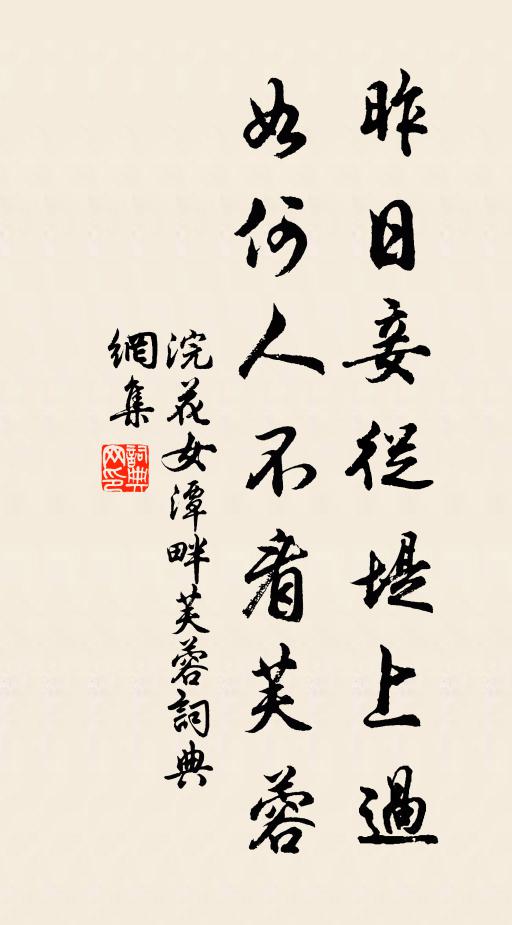 昨日妾從堤上過
如何人不看芙蓉
浣花女潭畔芙蓉詞典
網集
詞典
网印